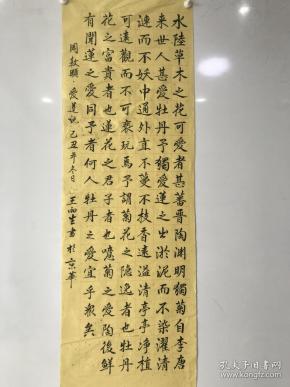 水陸草木之花可愛者甚蕃晉陶淵明獨菊自李唐
来世人甚愛牡丹予獨愛蓮之出淤泥而不染濯清
漣而不妖中通外直不蔓不枝香遠溢清亭亭净植
可遠觀而不可亵玩焉予謂菊花之隐逸者也牡丹
花之富貴者也蓮花之君子者也噫菊之愛陶後鮮
有聞蓮之愛同予者何人牡丹之愛宜乎衆矣
周敦頤愛蓮說己丑年冬日王西生書於京華
孔夫子旧书网